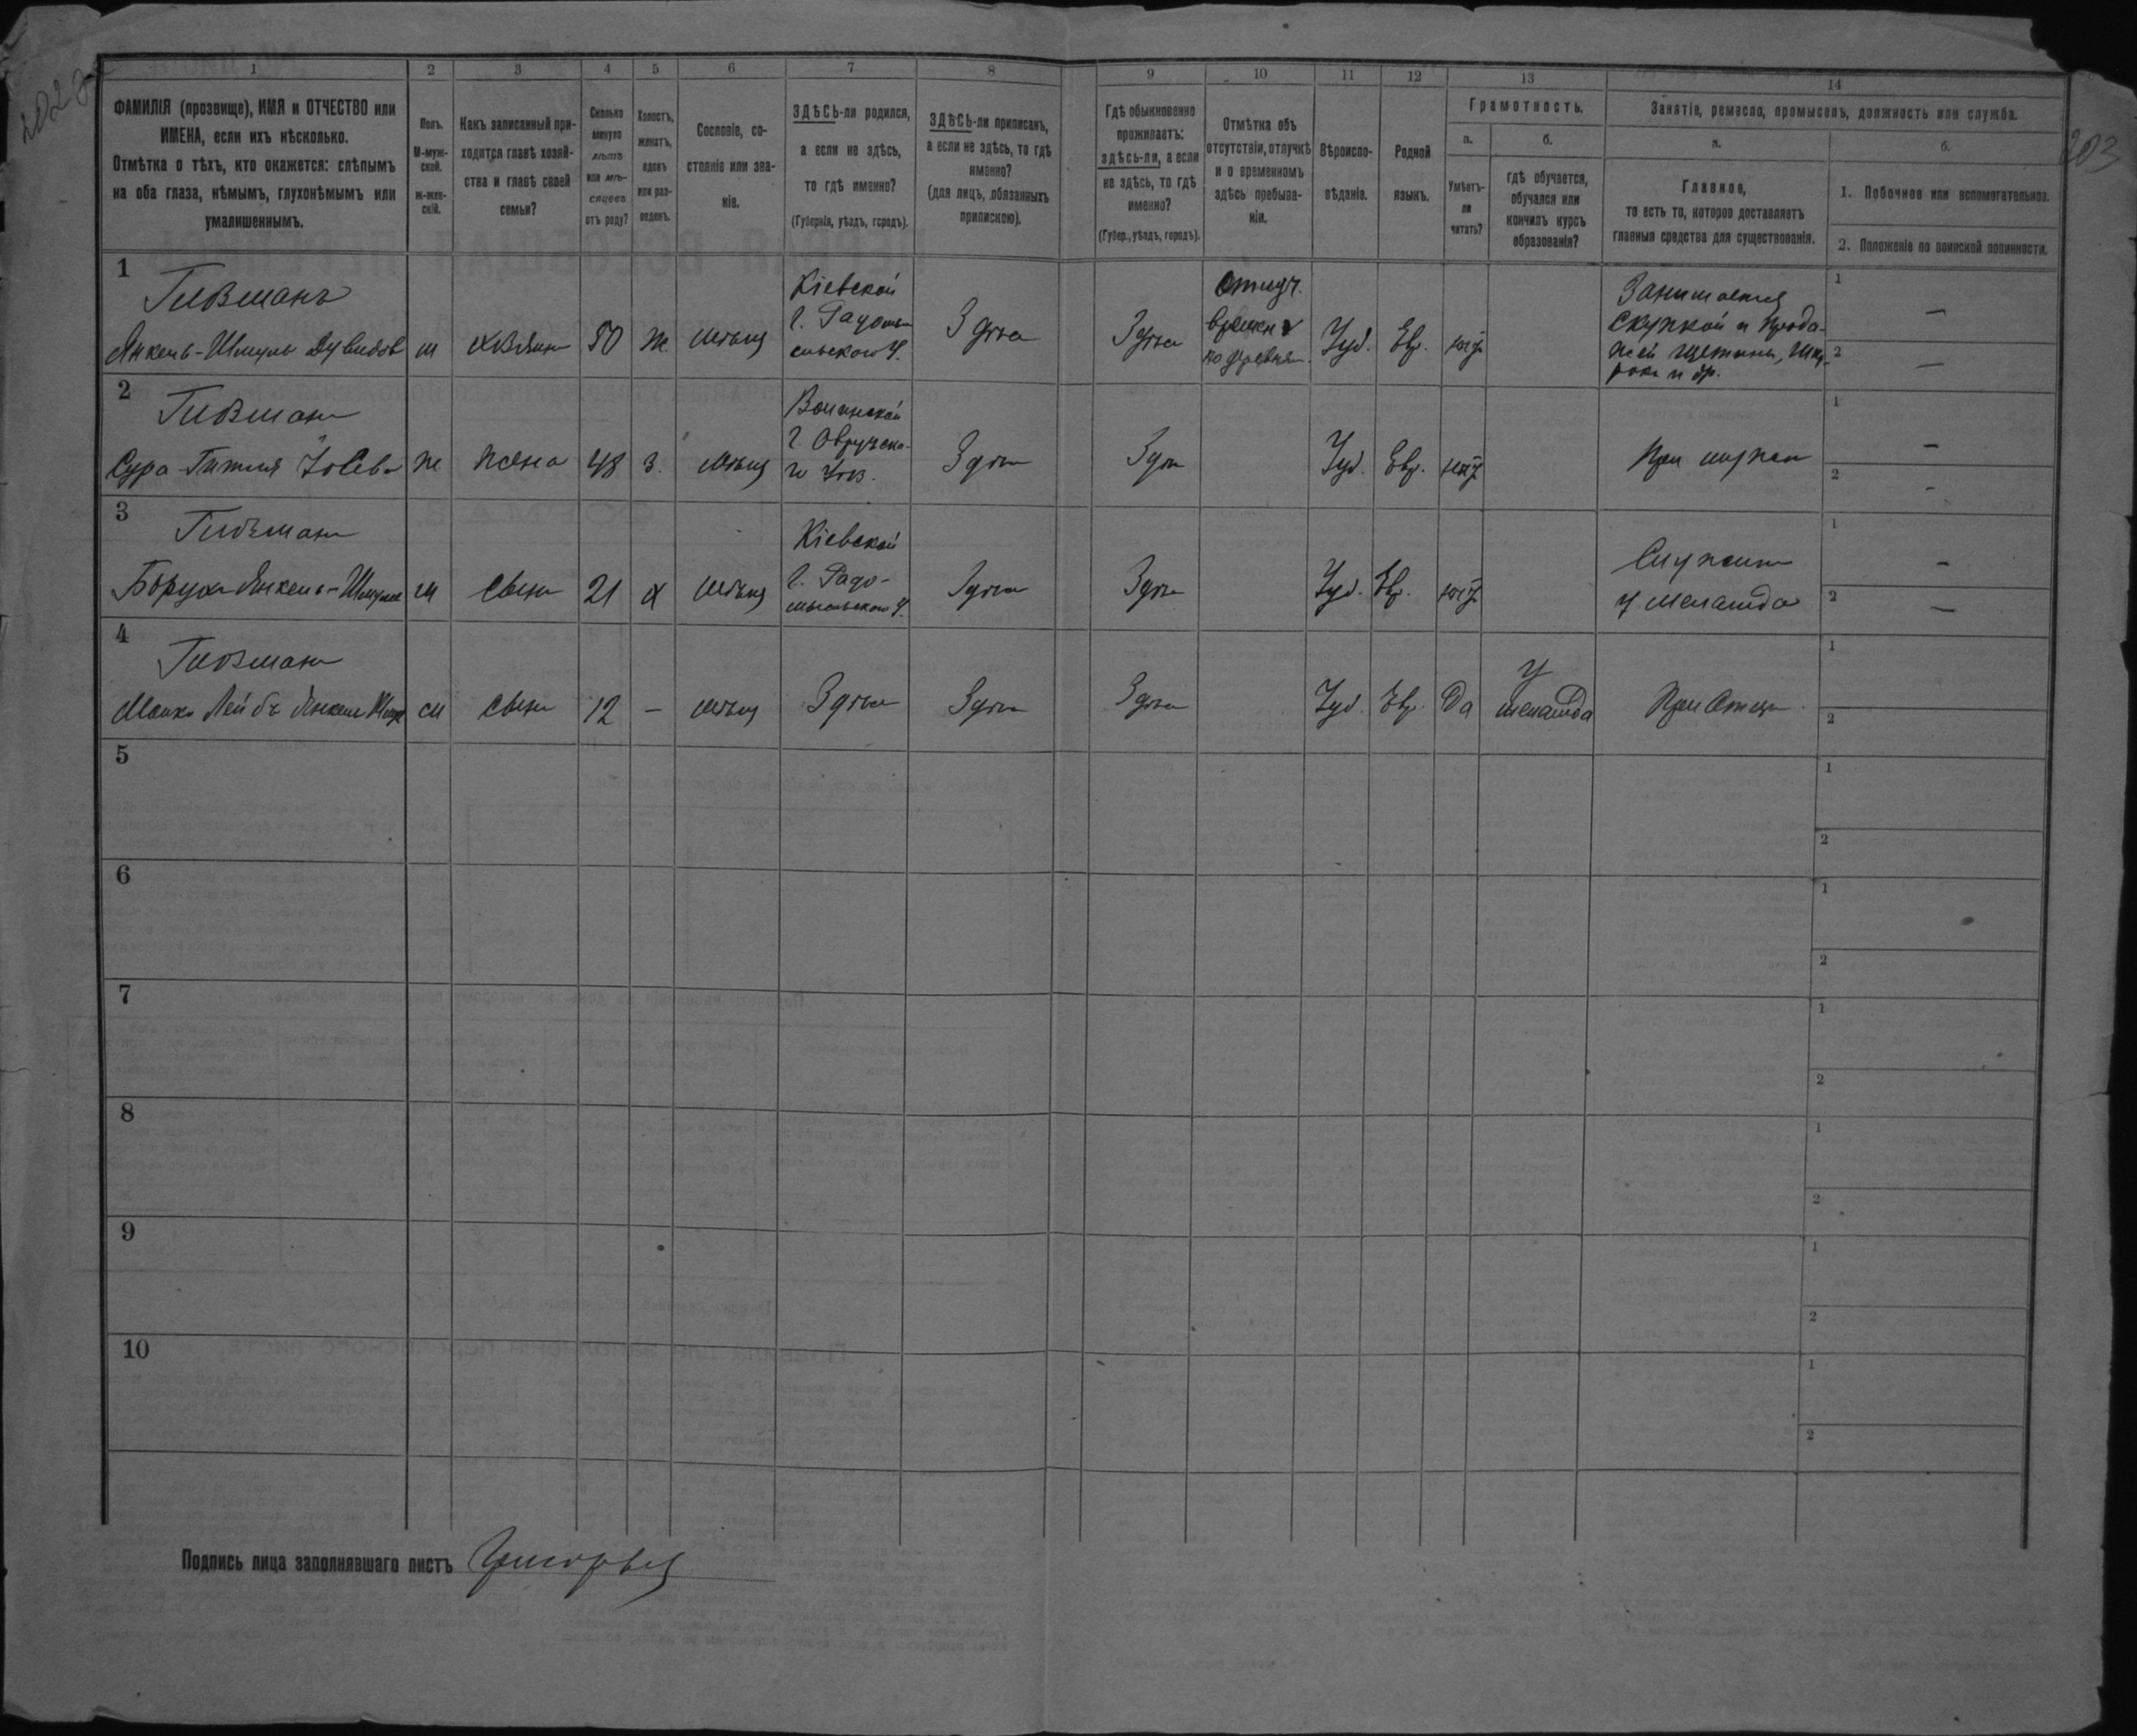 203
1
2
3
4
5
6
7
8
9
10
11
12
13
14
ФАМИЛІЯ (прозвище), ИМЯ и ОТЧЕСТВО или
ИМЕНА, если ихъ нѣсколько.
Отмѣтка о тѣхъ, кто окажется: слѣпымъ
на оба глаза, нѣмымъ, глухонѣмымъ или
умалишеннымъ.
Полъ.
М-муж-
ской.
Ж-жен-
скій.
Какъ записанный при-
ходится главѣ хозяй-
ства и главѣ своей
семьи?
Сколько
минуло
лѣтъ
или мѣ-
сяцевъ
отъ роду?
Холостъ,
женатъ,
вдовъ
или раз-
веденъ.
Сословіе, со-
стояніе или зва-
ніе.
ЗДѢСЬ-ли родился,
а если не здѣсь,
то гдѣ именно?
(Губернія, уѣздъ, городъ).
ЗДѢСЬ-ли приписанъ,
а если не здѣсь, то гдѣ
именно?
(для лицъ, обязанныхъ
припискою).
Гдѣ обыкновенно
проживаетъ:
здѣсь-ли, а если
не здѣсь, то гдѣ
именно?
(Губер., уѣздъ, городъ).
Отмѣтка объ
отсутствіи, отлучкѣ
и о временномъ
здѣсь пребыва-
ніи.
Вѣроиспо-
вѣданіе.
Родной
языкъ.
Грамотность.
а.
Умѣетъ-
ли
читать?
б.
гдѣ обучается,
обучался или
кончилъ курсъ
образованія?
Занятіе, ремесло, промыселъ, должность или служба.
а.
Главное,
то есть то, которое доставляетъ
главныя средства для существованія.
б.
1. Побочное или вспомогательное.
2. Положеніе по воинской повинности.
1
Янкель-Шмуль Дувидов
м
50
ж
Кіевской
г. Радомы-
сльского У.
Здѣсь
Здѣсь
Отлуч.
времен
по деревня
Іуд.
Евр.
Занимается
скупкой и прода-
жей щетины, шку-
рок и др.
1
—
2
—
2
Сура
ж
жена
48
з.
Волынской
г. Овручска-
го Уѣз.
Здѣсь
Здѣсь
Іуд.
Евр.
При мужѣ
1
—
2
-
3
Борухъ Янкель-Шмулев
м
сынъ
21
х
Кіевской
г. Радо-
мысльского У.
Здѣсь
Здѣсь
Іуд.
Евр.
Служит
у меламда
1
-
2
—
4
Лейбъ Янкель Шмул
м
сынъ
12
—
Здѣсь
Здѣсь
Здѣсь
Іуд.
Евр.
Да
у
меламда
При отцѣ
1
2
5
1
2
6
1
2
7
1
2
8
1
2
9
1
2
10
1
2
Подпись лица заполнявшаго листъ